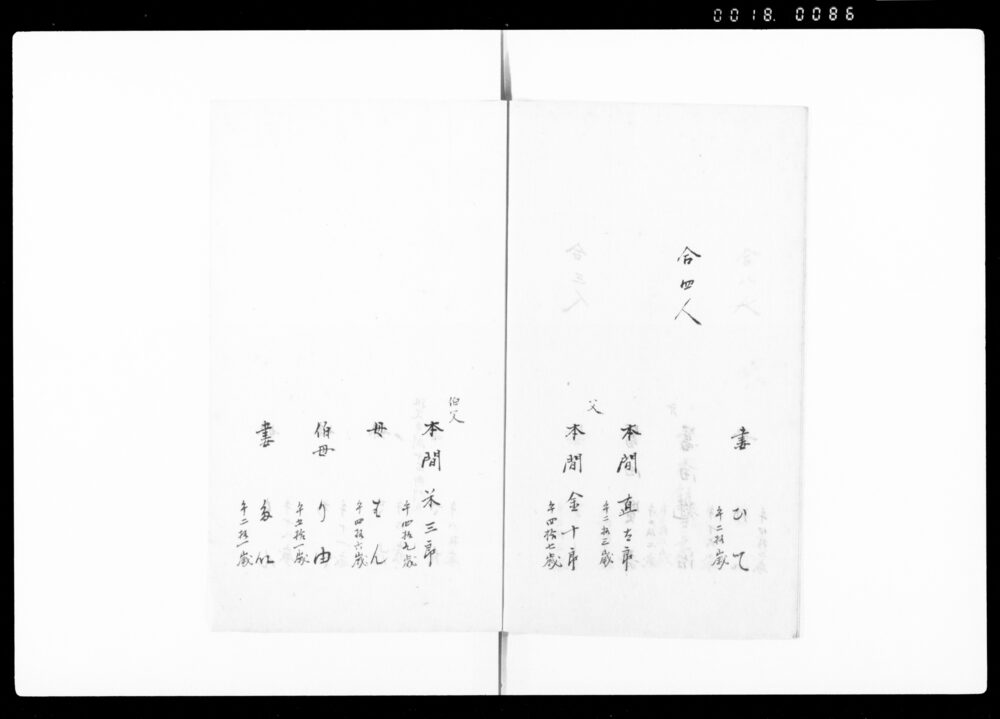 0018. 0086
妻 ひて
年二拾歳
合四人
本間直太郎
年二拾三歳
父
本間金十郎
年四拾七歳
伯父
本間米三郎
年四拾九歳
母 まん
年四拾六歳
伯母 りゆ
年五拾一歳
妻
年二拾一歳